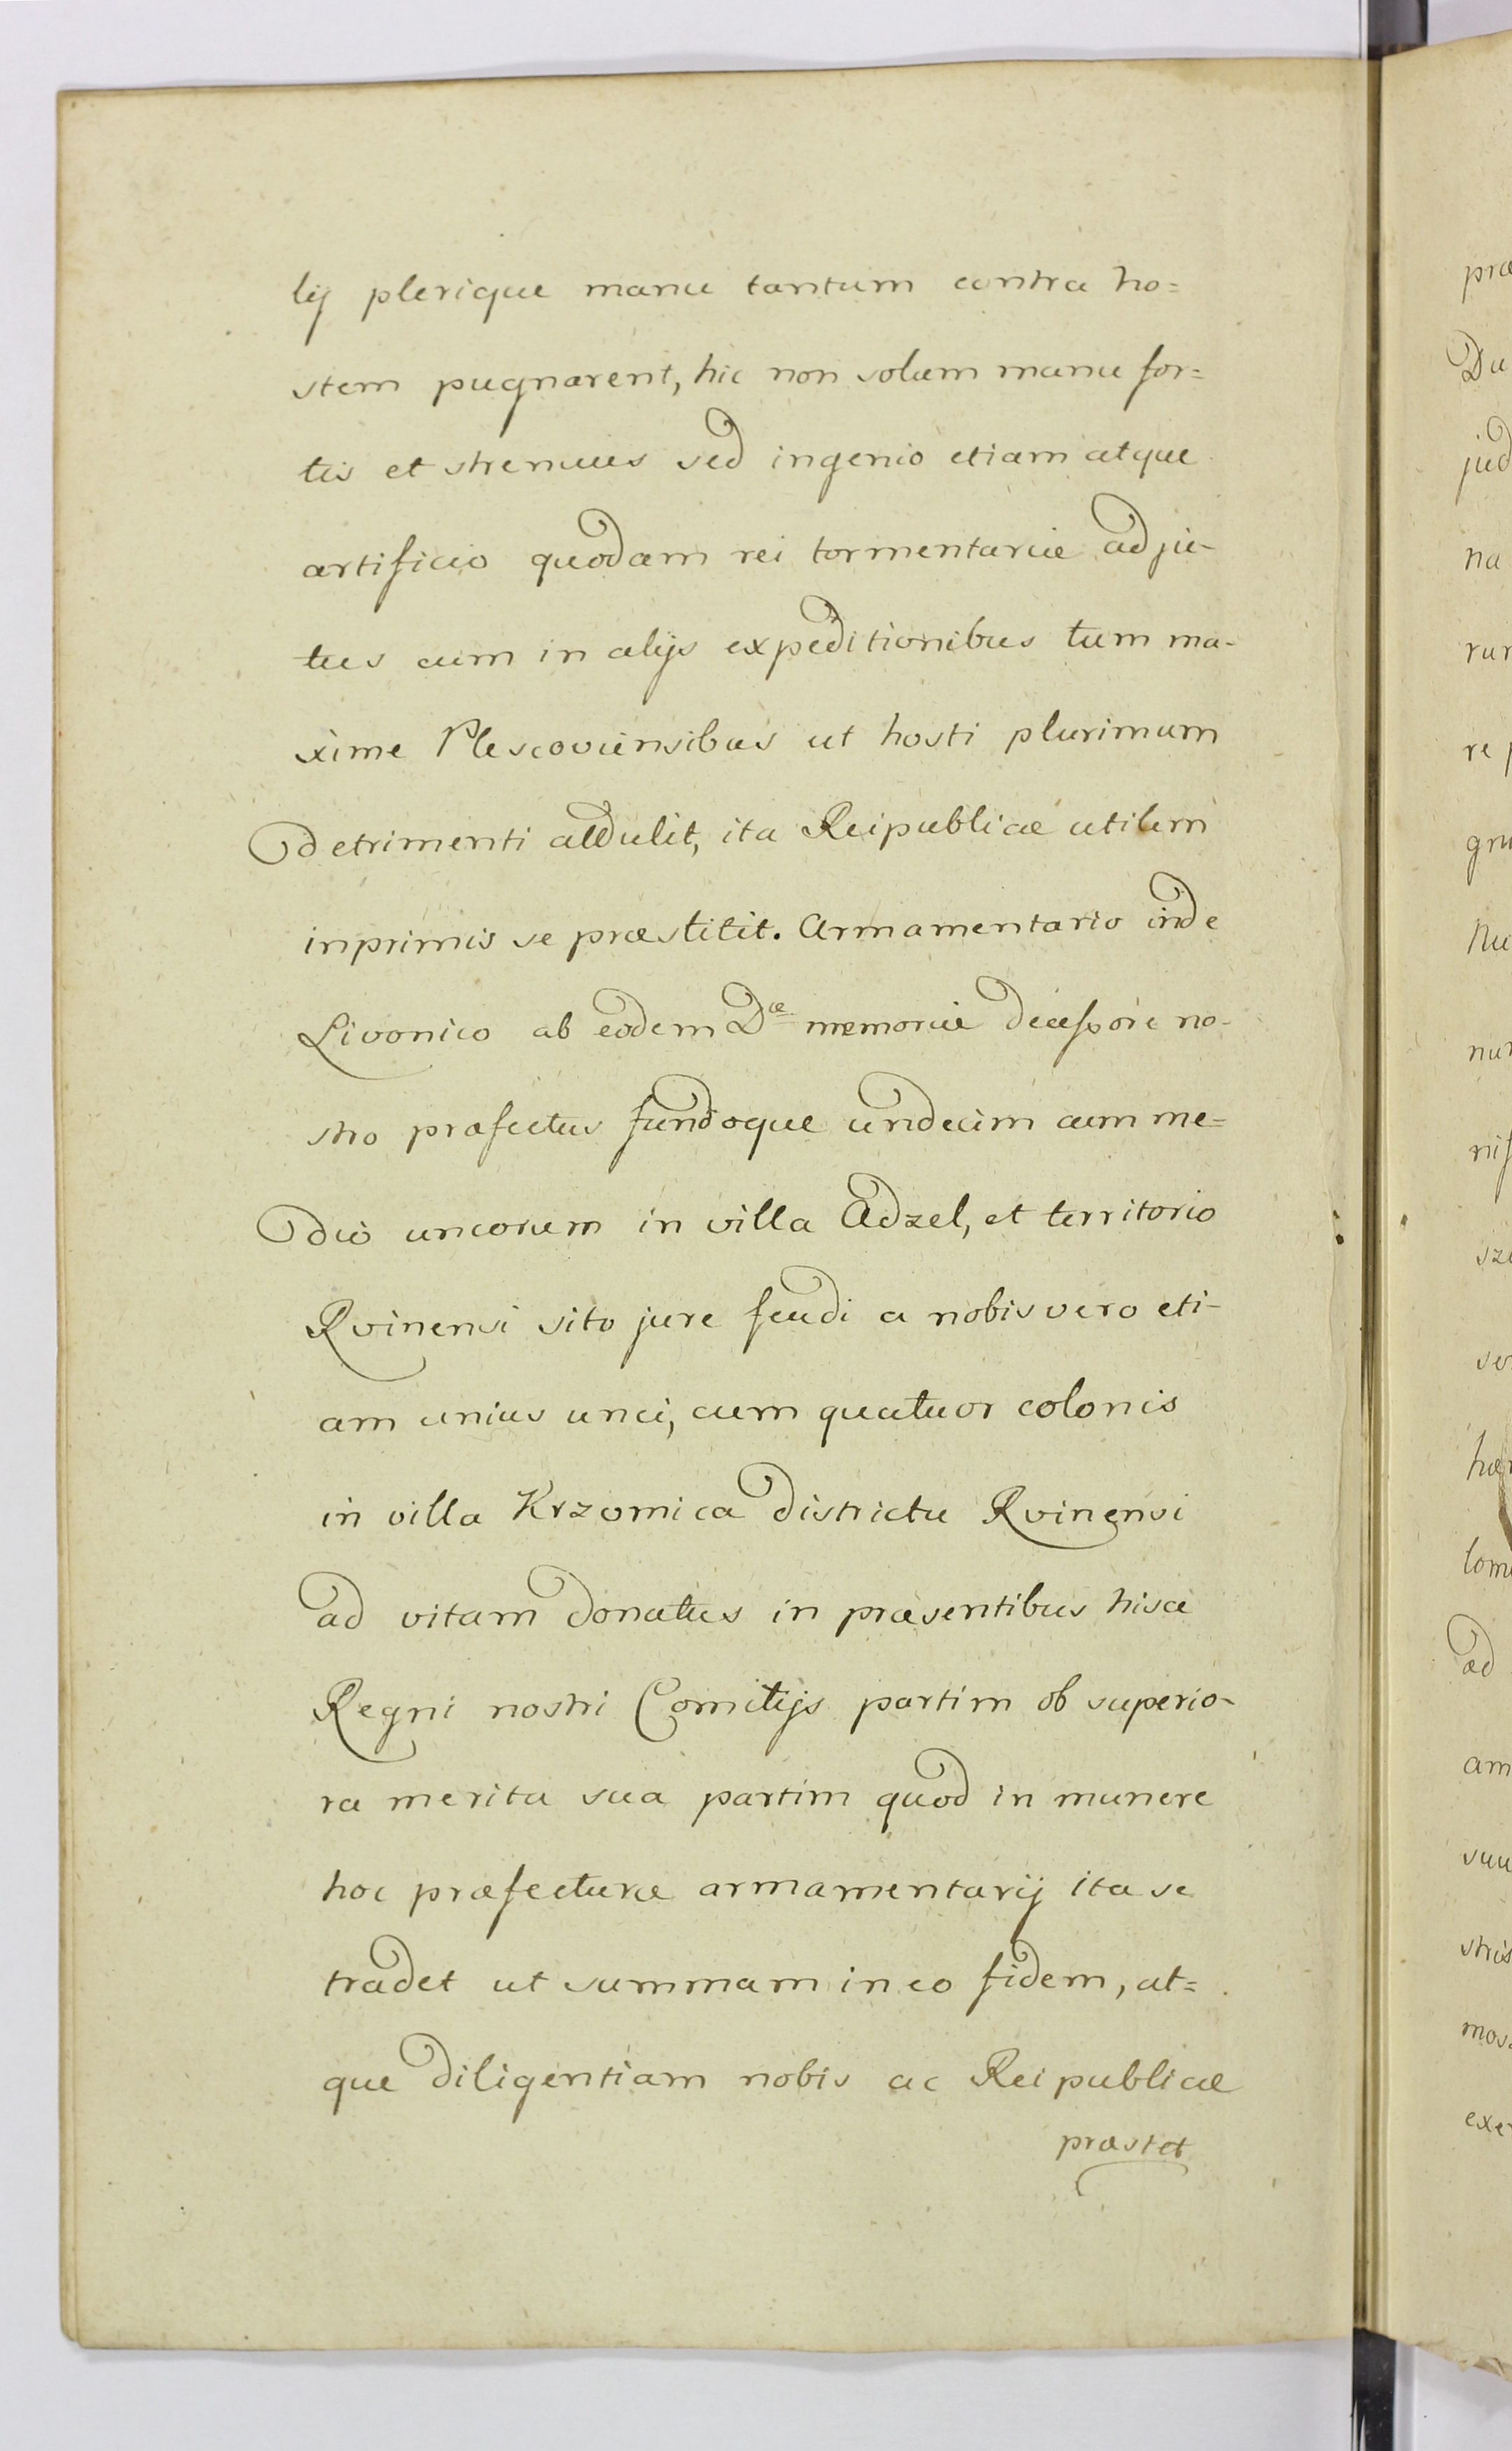 lij plerique manu tantum contra ho=
stem pugnarent, hic non solum manu for=
tis et strenuus sed ingenio etiam atque
artificio quodam rei tormentariæ adju-
tus cum in alijs expeditionibus tum ma-
xime Plescoviensibus ut hosti plurimum
detrimenti addulit, ita Reipublicæ utilem
inprimis se præstitit. Armamentario inde
Livonico ab eodem Dæ memoriæ decessore no-
stro præfectus fundoque undecim cum me=
dio uncorum in villa Adzel, et territorio
Rvinensi sito jure feudi a nobis vero eti-
am unius unci, cum quatuor colonis
in villa Krzomica districtu Rvinensi
ad vitam donatus in præsentibus hisce
Regni nostri Comitijs partim ob superio-
ra merita sua partim quod in munere
hoc præfecturæ armamentarij ita se
tradet ut summam in eo fidem, at=
que diligentiam nobis ac Reipublicæ
præstet
præ
Du
jud
na
rur
re p
gru
Nu
nur
sze
ser
lom
ad
am
suu
stris
mos
exe